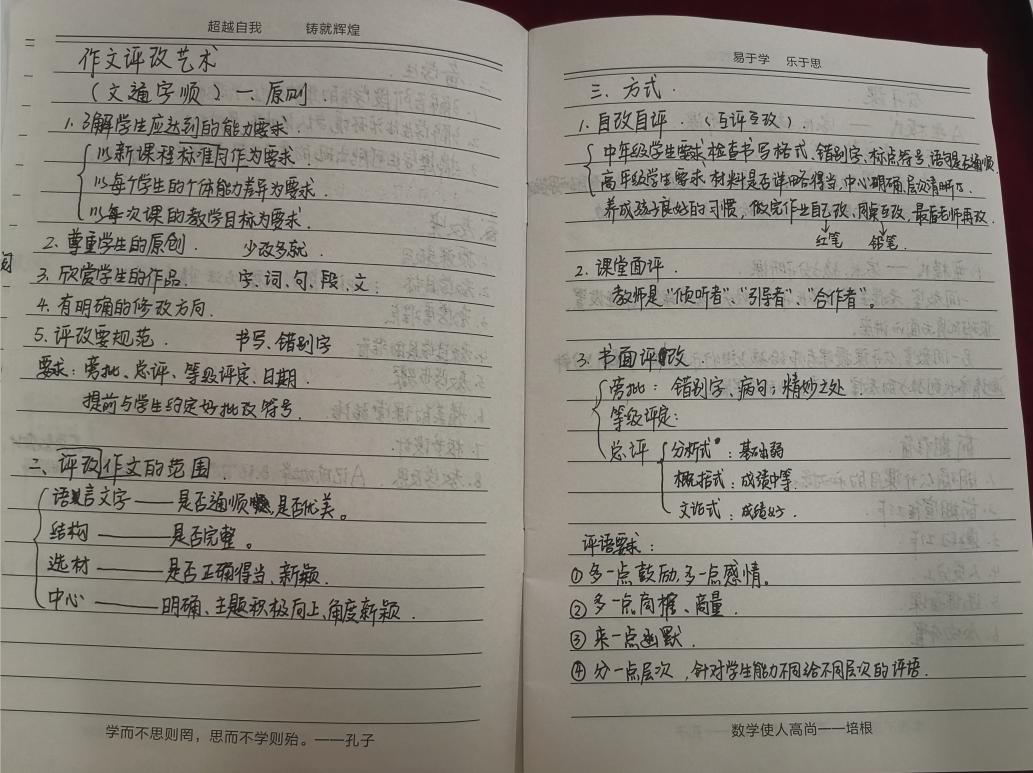 超越自我 铸就辉煌
作文评改艺术
(文通字顺) 一、原则.
1. 了解学生应达到的能力要求.
以新课程标准为作为要求.
以每个学生的个体能力差异为要求.
以每次课的教学目标为要求.
2. 尊重学生的原创. 少改多就.
3. 欣赏学生的作品. 字、词、句、段、文.
4. 有明确的修改方向.
5. 评改要规范. 书写、错别字
要求: 旁批、总评、等级评定、日期.
提前与学生约定好批改符号.
二、评改作文的范围.
语言文字——是否通顺,是否优美。
结构——是否完整。
选材——是否正确得当、新颖.
中心——明确、主题积极向上、角度新颖.
学而不思则罔,思而不学则殆。——孔子
易于学 乐于思
三、方式.
1. 自改自评. (互评互改).
中年级学生要求、检查书写格式、错别字、标点符号、语句是否通顺.
高年级学生要求、材料是否详略得当、中心明确、层次清晰.
养成孩子良好的习惯, 做完作业自己改、同桌互改、最后老师再改.
红笔 铅笔.
2. 课堂面评.
教师是“倾听者”、“引导者”、“合作者”。
3. 书面评改.
旁批: 错别字、病句; 精妙之处.
等级评定:
总评
分析式: 基础弱
概括式: 成绩中等.
文论式: 成绩好.
评语要求:
① 多一点鼓励, 多一点感情。
② 多一点商榷、商量.
③ 来一点幽默.
④ 分一点层次, 针对学生能力不同给不同层次的评语.
数学使人高尚——培根